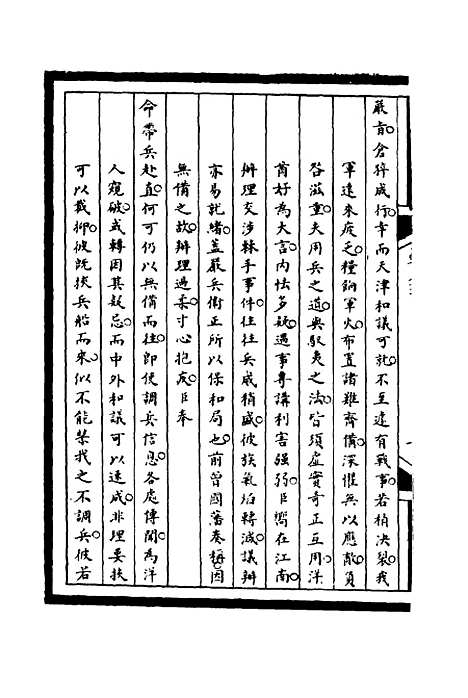 嚴旨倉猝成行幸而天津和議可就不至遽有戰事若稍決裂我
軍遠來疲乏糧餉軍火布置諸難齊備深懼無以應敵負
咎滋重夫用兵之道與馭夷之法皆須虛實奇正互用洋
酋好為大言內怯多疑遇事專講利害強弱臣嚮在江南
辦理交涉棘手事件往往兵威稍盛彼族氣焰轉減議辦
亦易就緒蓋嚴兵衛正所以保和局也前曾國藩奏稱因
無備之故辦理過柔寸心抱疚臣奉
命帶兵赴直何可仍以無備而往即使調兵信息各處傳聞為洋
人窺破或轉因其疑忌而中外和議可以速成非理要挾
可以戢抑彼既挾兵船而來似不能禁我之不調兵彼若